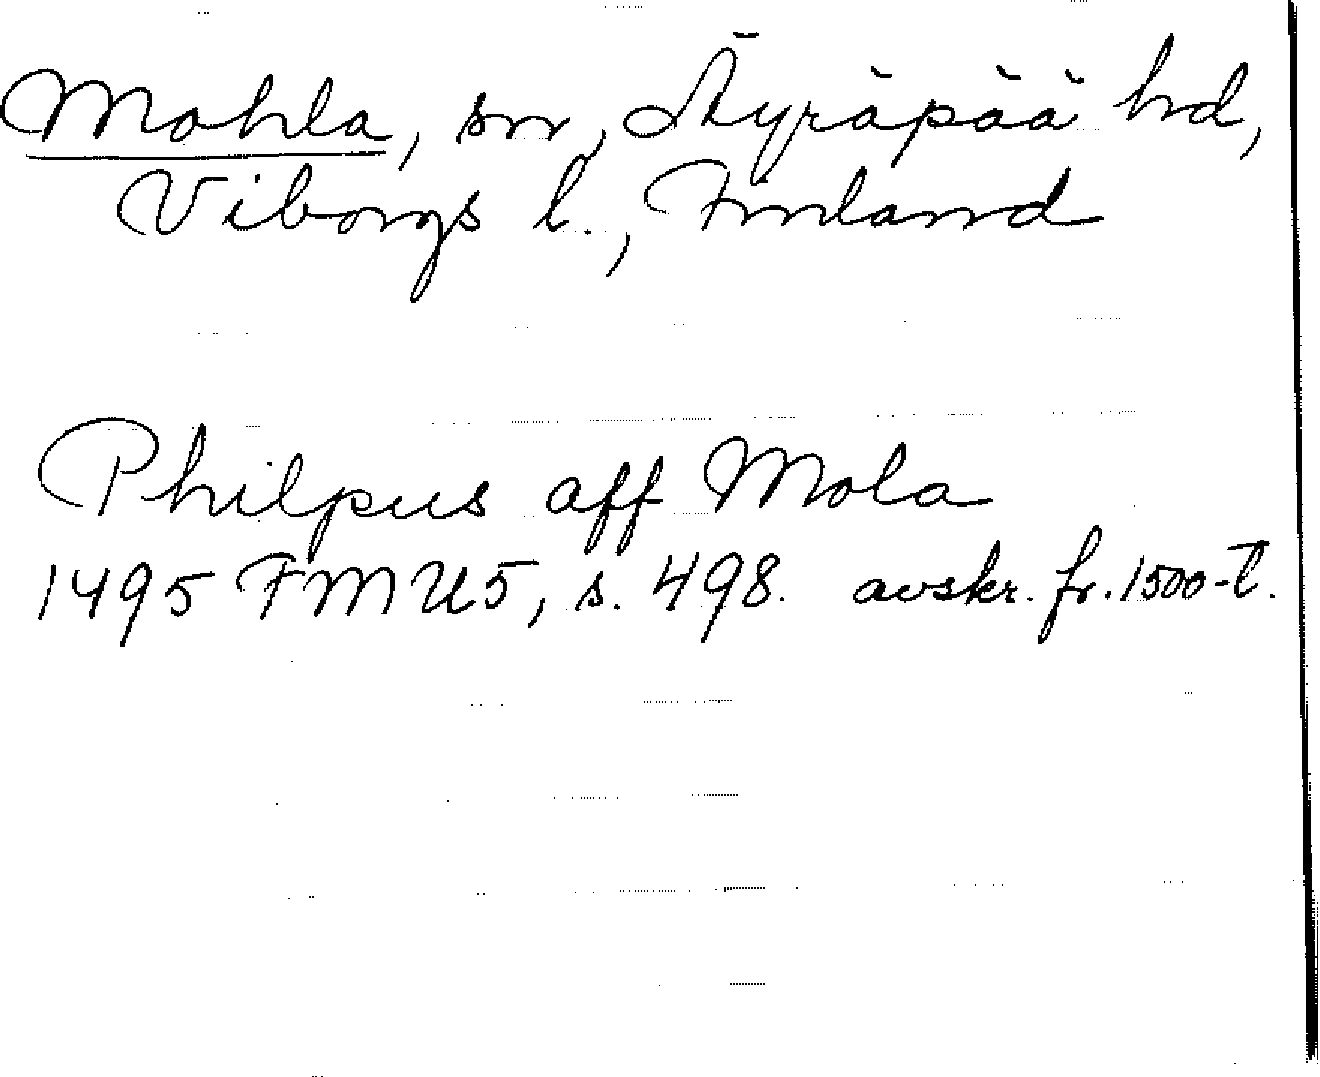 Mohla, sn, Äyräpää hd,
Viborgs l., Finland
Philpus aff Mola
1495 FMU5, s. 498. avskr. fr. 1500-t.